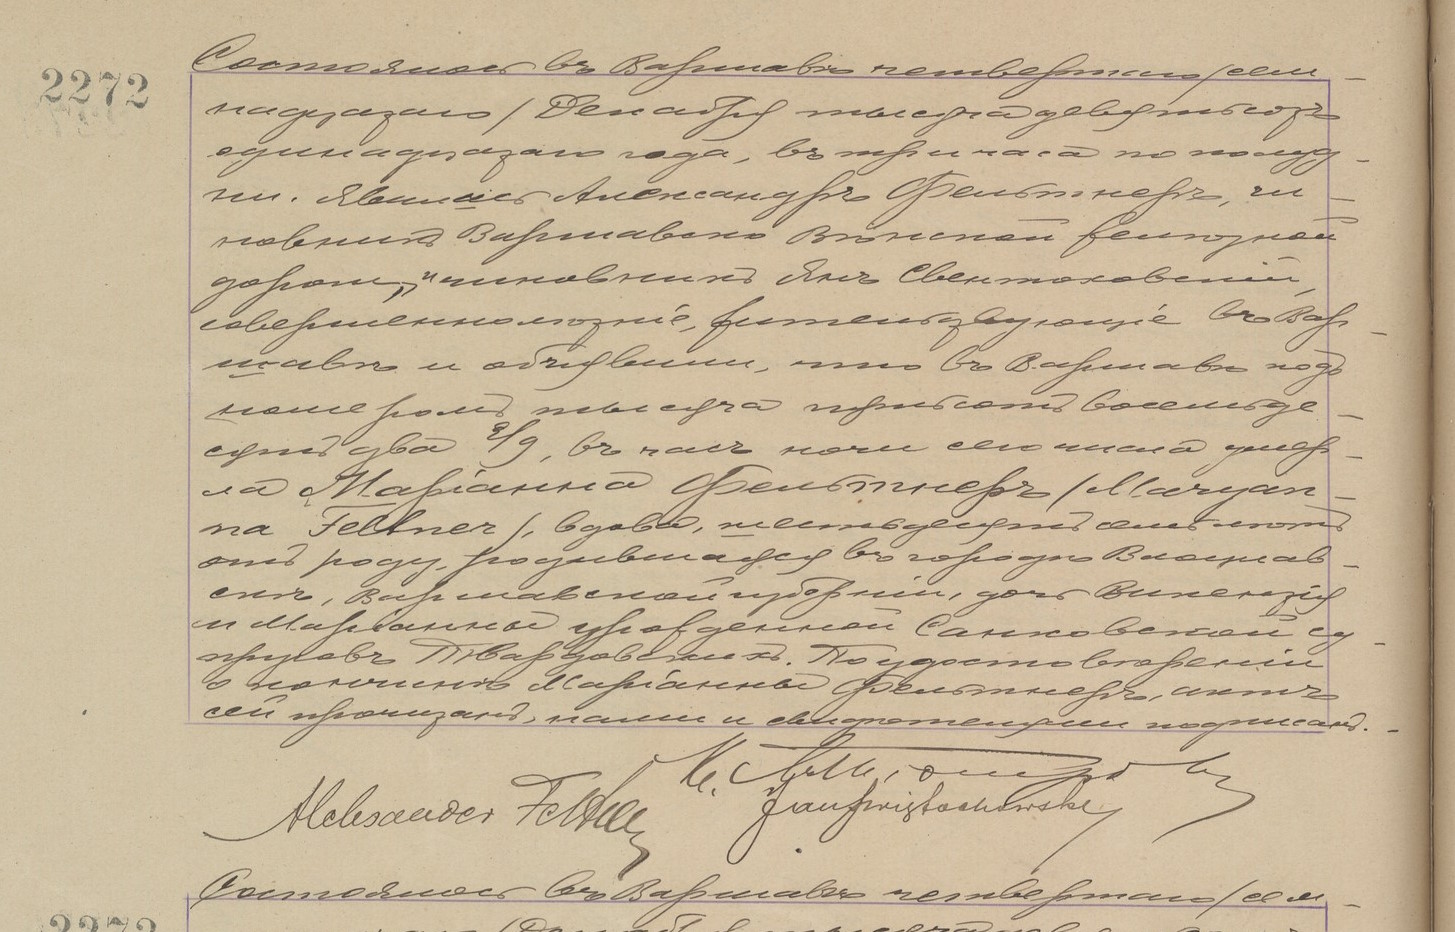 2272
Состоялось въ Варшавѣ четвертаго /сем-
надцатаго/ Декабря тысяча девятьсотъ
одинадцатаго года, въ три часа по полуд-
ни. Явились Александръ Фельтнеръ, чи-
новникъ Варшавско Вѣнской желѣзной
дороги, и чиновникъ Янъ Свентоховскій,
совершеннолѣтніе, жительствующіе въ Вар-
шавѣ и объявили, что въ Варшавѣ подъ
номеромъ тысяча пятьсотъ восемьде-
сятъ два 8/9, въ часъ ночи сего числа умер-
ла Маріанна Фельтнеръ /Maryan-
na Feltner/, вдова, шестьдесятъ семь лѣтъ
отъ роду, родившаяся въ городѣ Влоцлав-
скѣ, Варшавской губерніи, дочь Викентія
и Маріанны урожденной Санковской су-
пруговъ Твардовскихъ. По удостовѣреніи
о кончинѣ Маріанны Фельтнеръ, актъ
сей прочитанъ, нами и свидѣтелями подписанъ.
Aleksander Feltner
Jan Świętochowski
Состоялось въ Варшавѣ четвертаго /сем-
2273